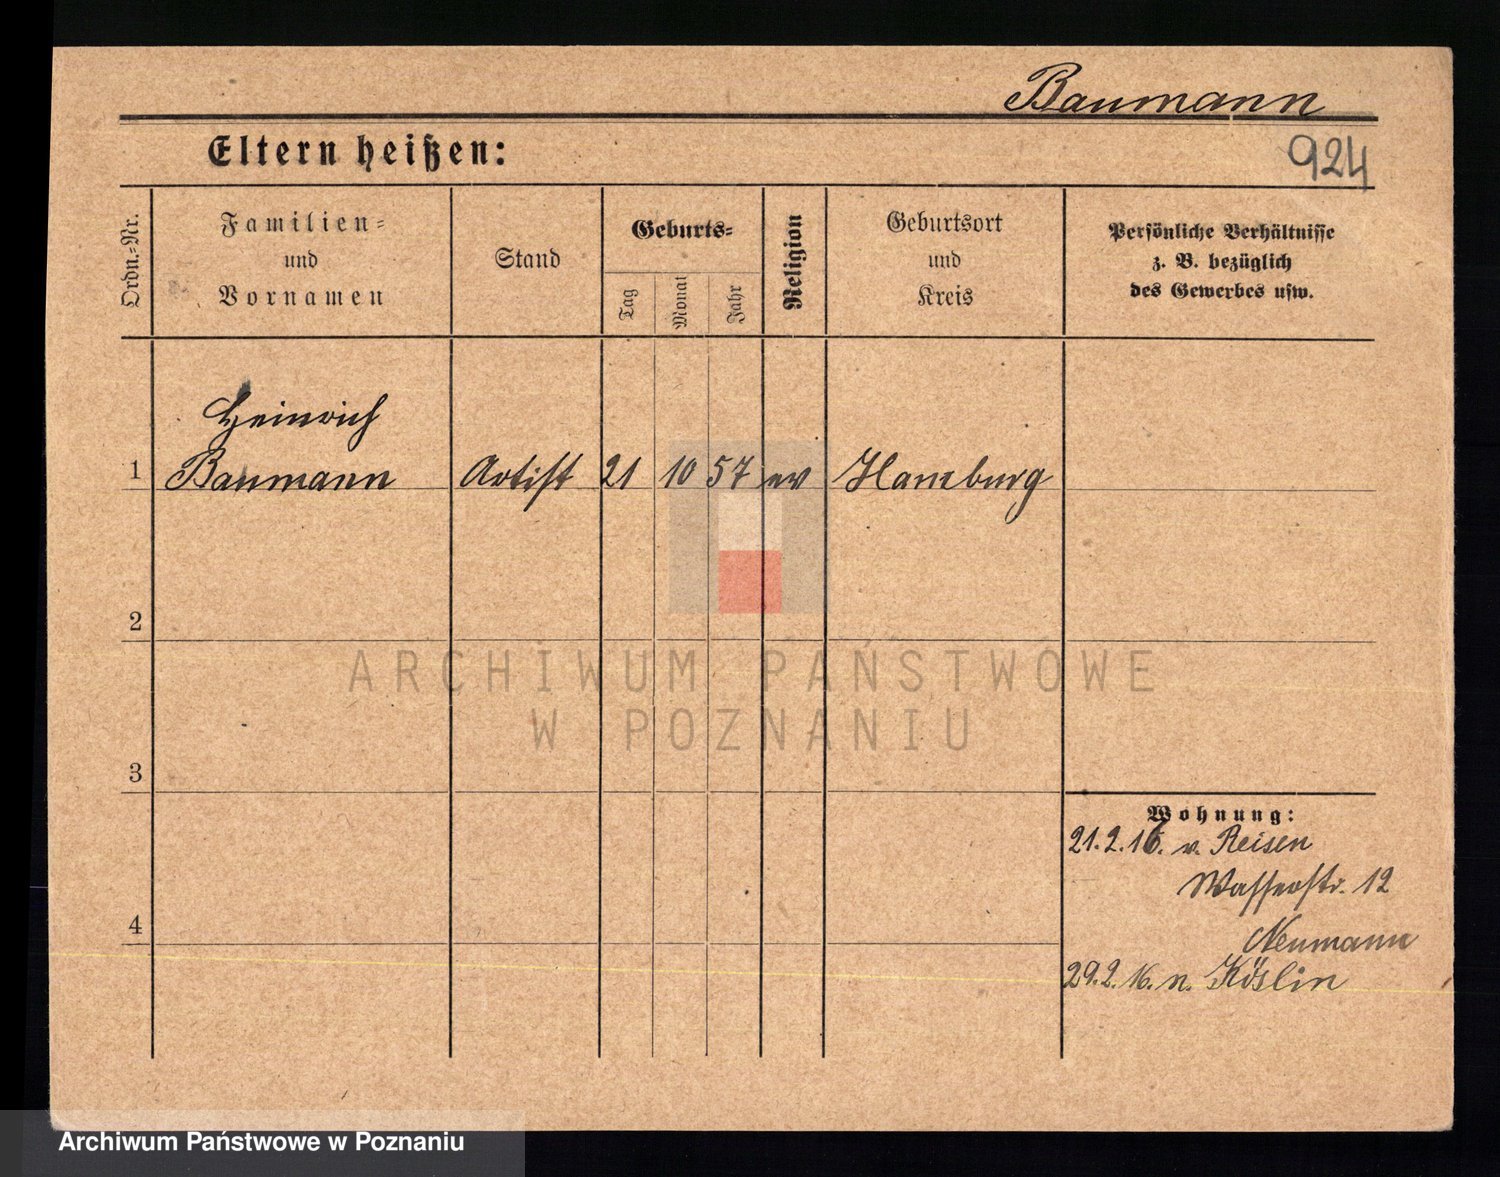 Baumann
Eltern heißen:
924
Ordn.-Nr.
Familien-
und
Vornamen
Stand
Geburts-
Tag
Monat
Jahr
Religion
Geburtsort
und
Kreis
Persönliche Verhältnisse
z. B. bezüglich
des Gewerbes usw.
Heinrich
1 Baumann Artist 21 10 57 ev Hamburg
2
ARCHIWUM PAŃSTWOWE
W POZNANIU
3
Wohnung:
21.2.16. v. Reisen
Wasserstr. 12
4
Neumann
29.2.16. n. Köslin
Archiwum Państwowe w Poznaniu